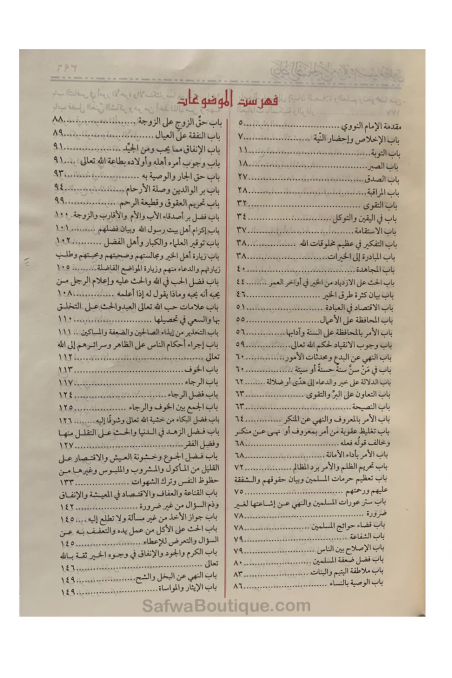 فهرست الموضوعات
مقدمة الإمام النووي ..... ٥
باب الإخلاص وإحضار النيّة ..... ٧
باب التوبة ..... ١١
باب الصبر ..... ١٨
باب الصدق ..... ٢٧
باب المراقبة ..... ٢٨
باب التقوى ..... ٣٢
باب في اليقين والتوكل ..... ٣٤
باب الاستقامة ..... ٣٧
باب التفكير في عظيم مخلوقات الله ..... ٣٨
باب المبادرة إلى الخيرات ..... ٣٨
باب المجاهدة ..... ٤٠
باب الحث على الازدياد من الخير في أواخر العمر .. ٤٤
باب بيان كثرة طرق الخير ..... ٤٦
باب الاقتصاد في العبادة ..... ٥١
باب المحافظة على الأعمال ..... ٥٥
باب الأمر بالمحافظة على السنة وآدابها ..... ٥٦
باب وجوب الانقياد لحكم الله تعالى ..... ٥٩
باب النهي عن البدع ومحدثات الأمور ..... ٦٠
باب في مَنْ سنَّ سنةً حسنةً أو سيئة ..... ٦٠
باب الدلالة على خير والدعاء إلى هدًى أو ضلالة .. ٦٢
باب التعاون على البرِّ والتقوى ..... ٦٣
باب النصيحة ..... ٦٣
باب الأمر بالمعروف والنهي عن المنكر ..... ٦٤
باب تغليظ عقوبة من أمر بمعروف أو نهى عن منكر
وخالف قوله فعله ..... ٦٨
باب الأمر بأداء الأمانة ..... ٦٨
باب تحريم الظلم والأمر برد المظالم ..... ٧٢
باب تعظيم حرمات المسلمين وبيان حقوقهم والشفقة
عليهم ورحمتهم ..... ٧٥
باب ستر عورات المسلمين والنهي عن إشاعتها لغير
ضرورة ..... ٧٨
باب قضاء حوائج المسلمين ..... ٧٨
باب الشفاعة ..... ٧٩
باب الإصلاح بين الناس ..... ٧٩
باب فضل ضعفة المسلمين ..... ٨٠
باب ملاطفة اليتيم والبنات ..... ٨٣
باب الوصية بالنساء ..... ٨٦
باب حقّ الزوج على الزوجة ..... ٨٨
باب النفقة على العيال ..... ٨٩
باب الإنفاق مما يحب ومن الجيِّد ..... ٩١
باب وجوب أمره أهله وأولاده بطاعة الله تعالى .. ٩١
باب حق الجار والوصية به ..... ٩٣
باب بر الوالدين وصلة الأرحام ..... ٩٤
باب تحريم العقوق وقطيعة الرحم ..... ٩٩
باب فضل بر أصدقاء الأب والأم والأقارب والزوجة . ١٠٠
باب إكرام أهل بيت رسول الله وبيان فضلهم .. ١٠١
باب توقير العلماء والكبار وأهل الفضل ..... ١٠٢
باب زيارة أهل الخير ومجالستهم وصحبتهم ومحبتهم وطلب
زيارتهم والدعاء منهم وزيارة المواضع الفاضلة ..... ١٠٥
باب فضل الحب في الله والحث عليه وإعلام الرجل من
يحبه أنه يحبه وماذا يقول له إذا أعلمه ..... ١٠٨
باب علامات حب الله تعالى العبد والحث على التخلّق
بها والسعي في تحصيلها ..... ١١٠
باب التحذير من إيذاء الصالحين والضعفة والمساكين .. ١١١
باب إجراء أحكام الناس على الظاهر وسرائرهم إلى الله
تعالى ..... ١١٢
باب الخوف ..... ١١٣
باب الرجاء ..... ١١٧
باب فضل الرجاء ..... ١٢٤
باب الجمع بين الخوف والرجاء ..... ١٢٥
باب فضل البكاء من خشية الله تعالى وشوقًا إليه .. ١٢٦
باب فضل الزهد في الدنيا والحث على التقلل منها
وفضل الفقر ..... ١٢٧
باب فضل الجوع وخشونة العيش والاقتصار على
القليل من المأكول والمشروب والملبوس وغيرها من
حظوظ النفس وترك الشهوات ..... ١٣٣
باب القناعة والعفاف والاقتصاد في المعيشة والإنفاق
وذم السؤال من غير ضرورة ..... ١٤٢
باب جواز الأخذ من غير مسألة ولا تطلع إليه ... ١٤٥
باب الحث على الأكل من عمل يده والتعفف به عن
السؤال والتعرض للإعطاء ..... ١٤٥
باب الكرم والجود والإنفاق في وجوه الخير ثقة بالله
تعالى ..... ١٤٦
باب النهي عن البخل والشح ..... ١٤٩
باب الإيثار والمواساة ..... ١٤٩
SafwaBoutique.com